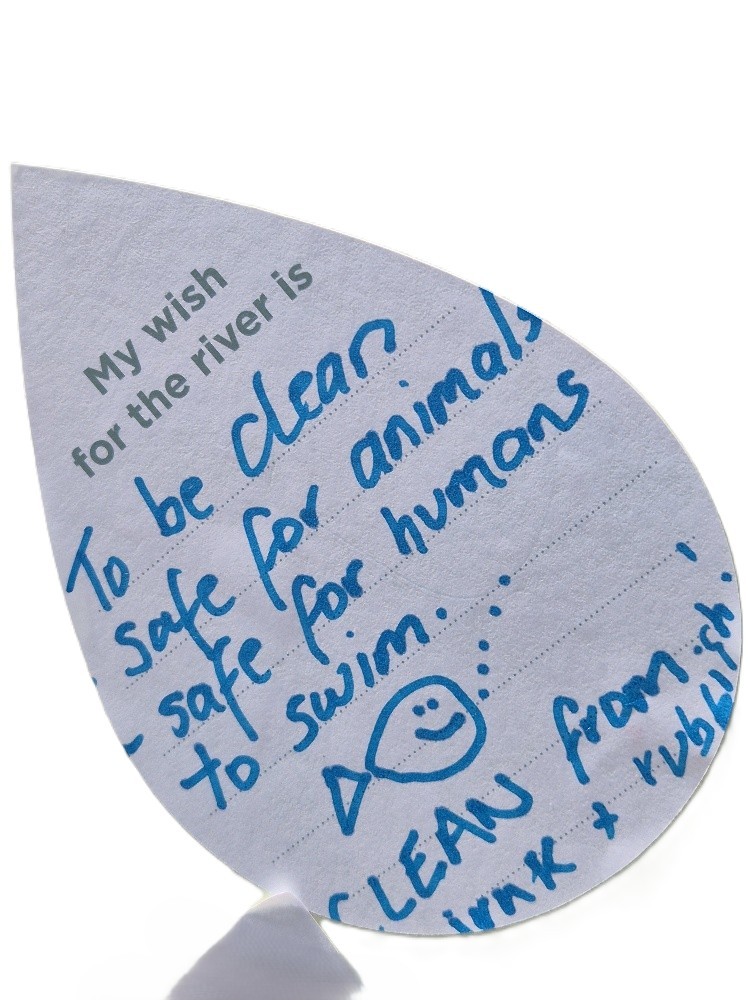 My wish
for the river is
To be clean
safe for animals
safe for humans
to swim.
CLEAN from
+ rubbish.